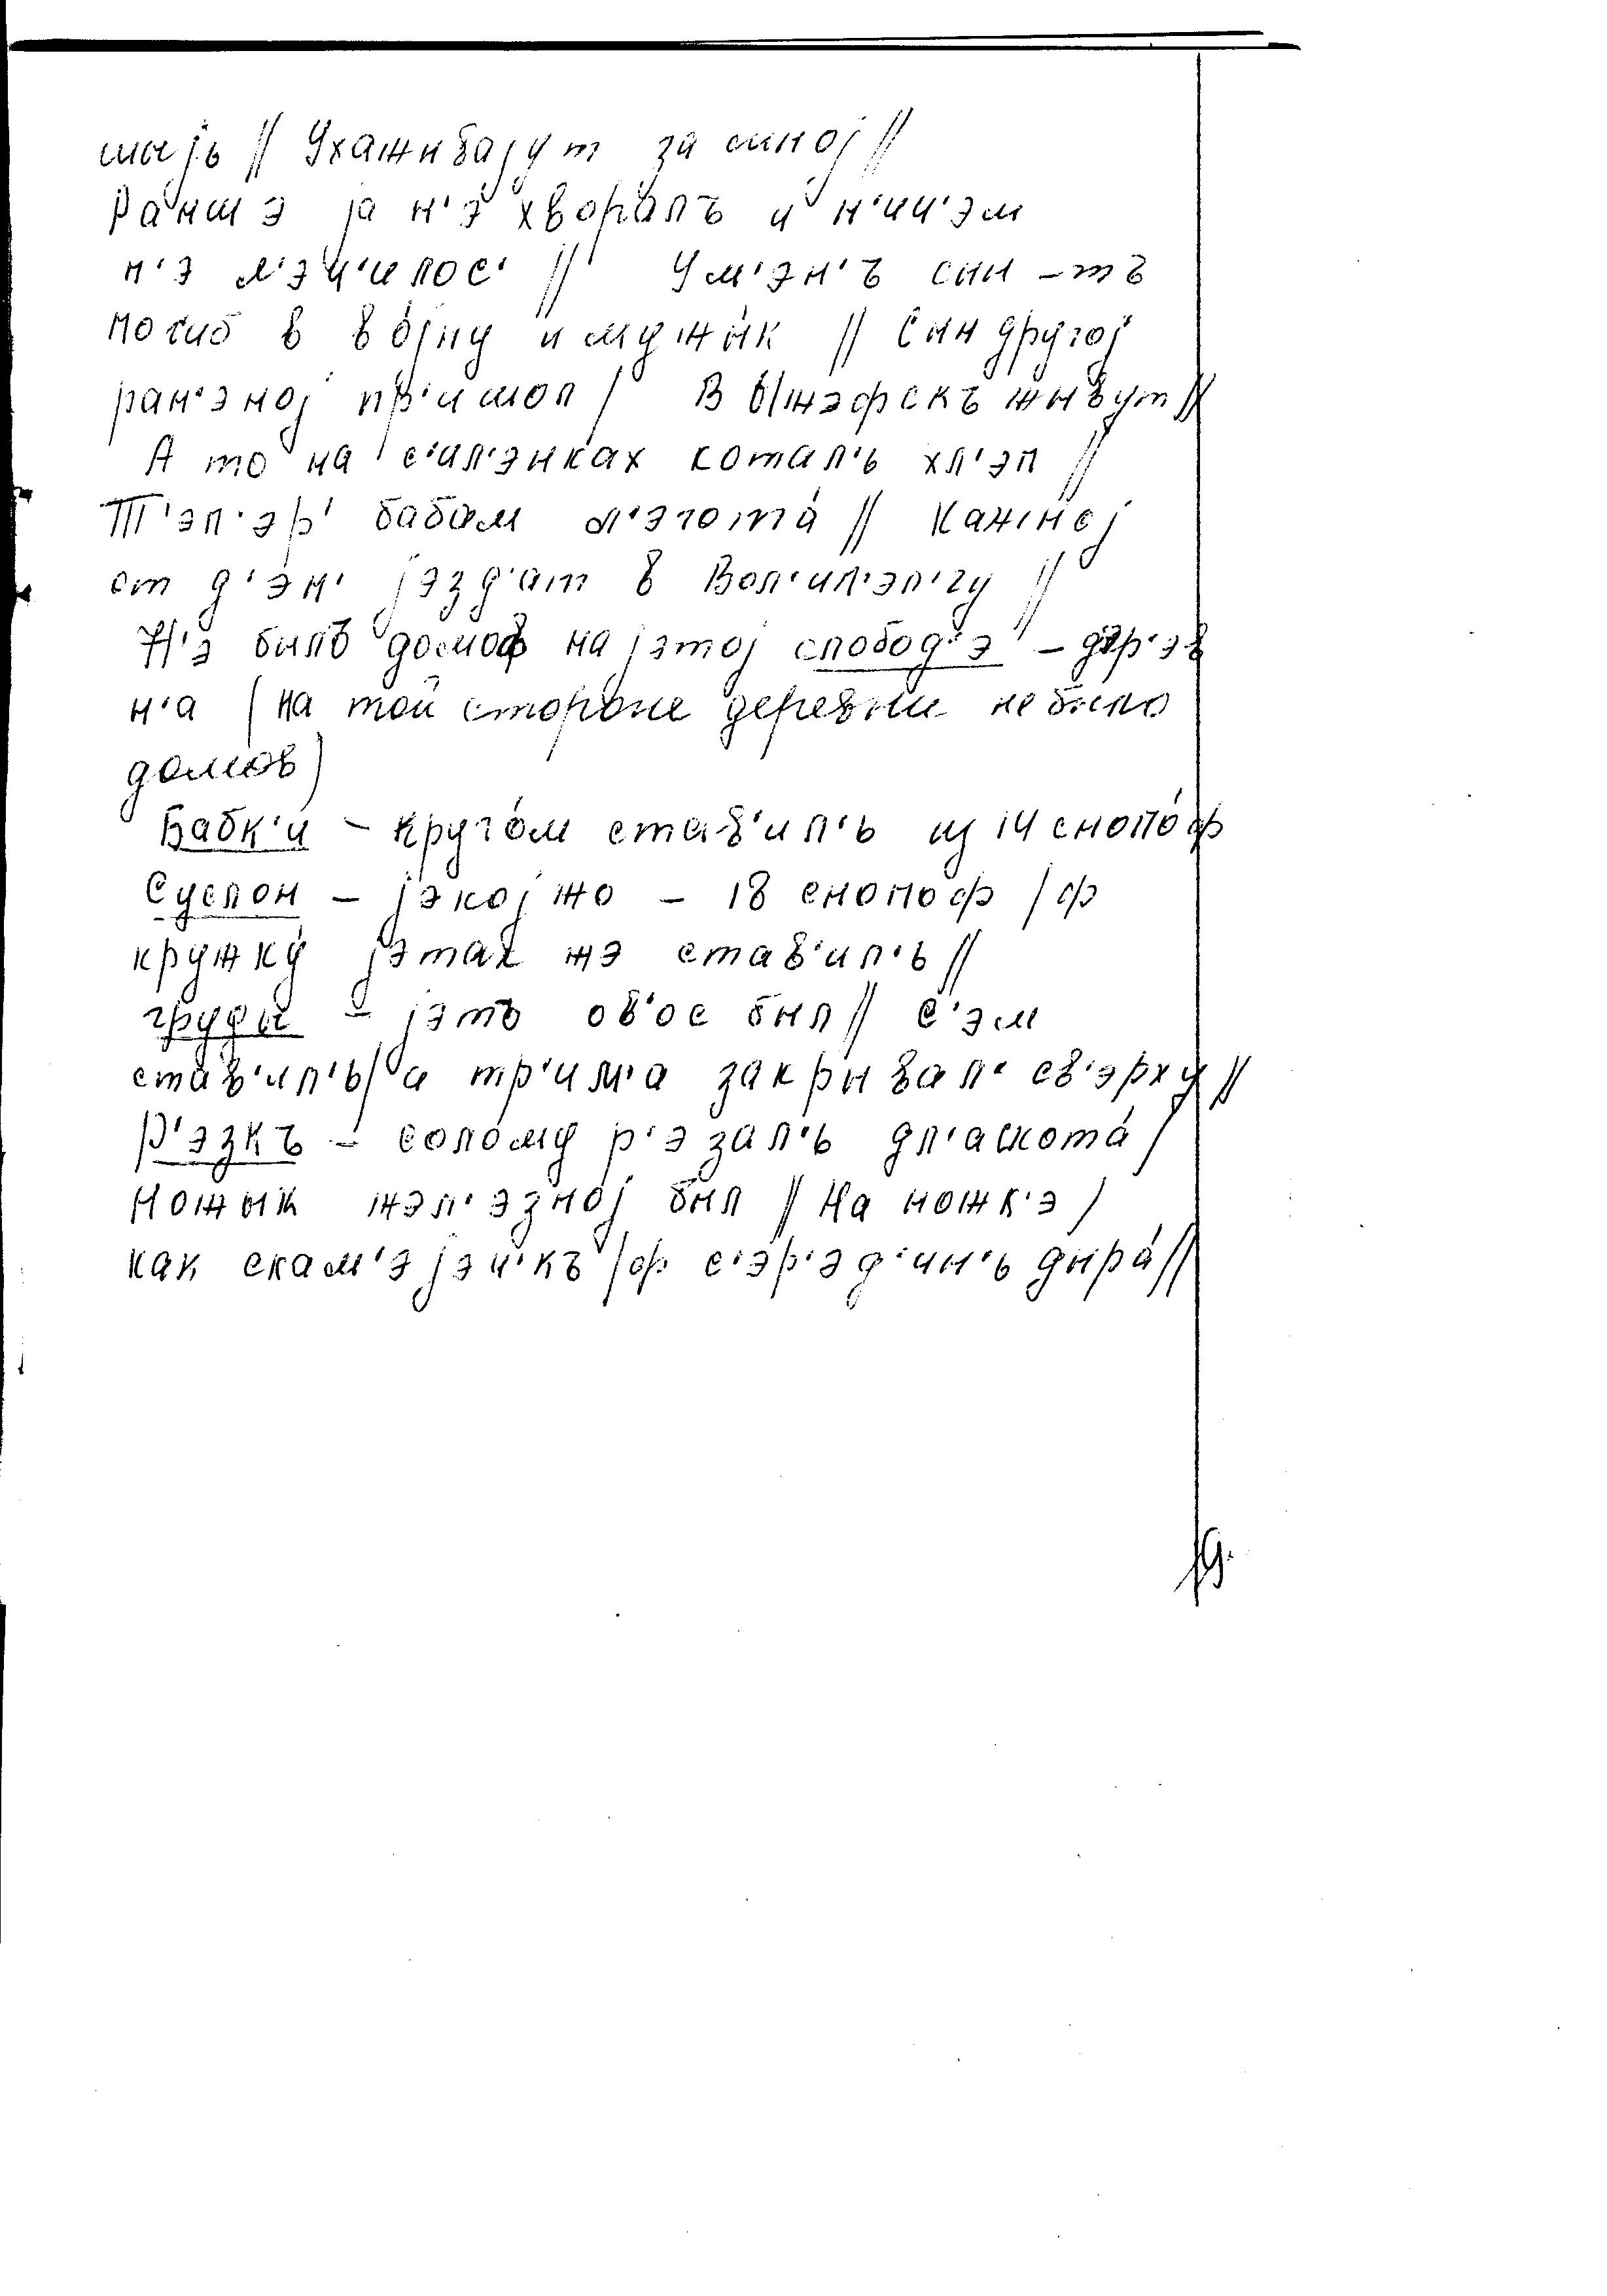 шыjь // Ухажываjут за мноj //
Раншэ jа н'э хворалъ и н'ич'эм
н'э л'эч'илос' // У м'эн'ъ сын-тъ
погиб в воjну и мужык // Сын другоj
ран'эноj пр'ишол / В Ыжэфскъ жывут //
А то на с'ил'энках котал'ь хл'эп //
Т'эп'эр' бабам л'эгота́ // Кажноj
от д'эн' jэзд'ат в Вол'ил'эл'гу //
Н'э былъ домоф на jэтоj слобод'э – дэр'эв
н'а (на той стороне деревни не было
домов)
Бабк'и – круго́м став'ил'ь из 14 снопо́ф
Суслон – jэкоj жо – 18 снопоф / ф
кружку́ jэтак жэ став'ил'ь //
груды – jэтъ ов'ос был // С'эм
став'ил'ь / а тр'им'а закрывал' св'эрху //
Р'эзкъ – соло́му р'эзал'ь дл'а скота́ /
Ножык жэл'эзноj был // На ножк'э /
как скам'эjэч'къ / ф с'эр'эд'ин'ь дыра́ //